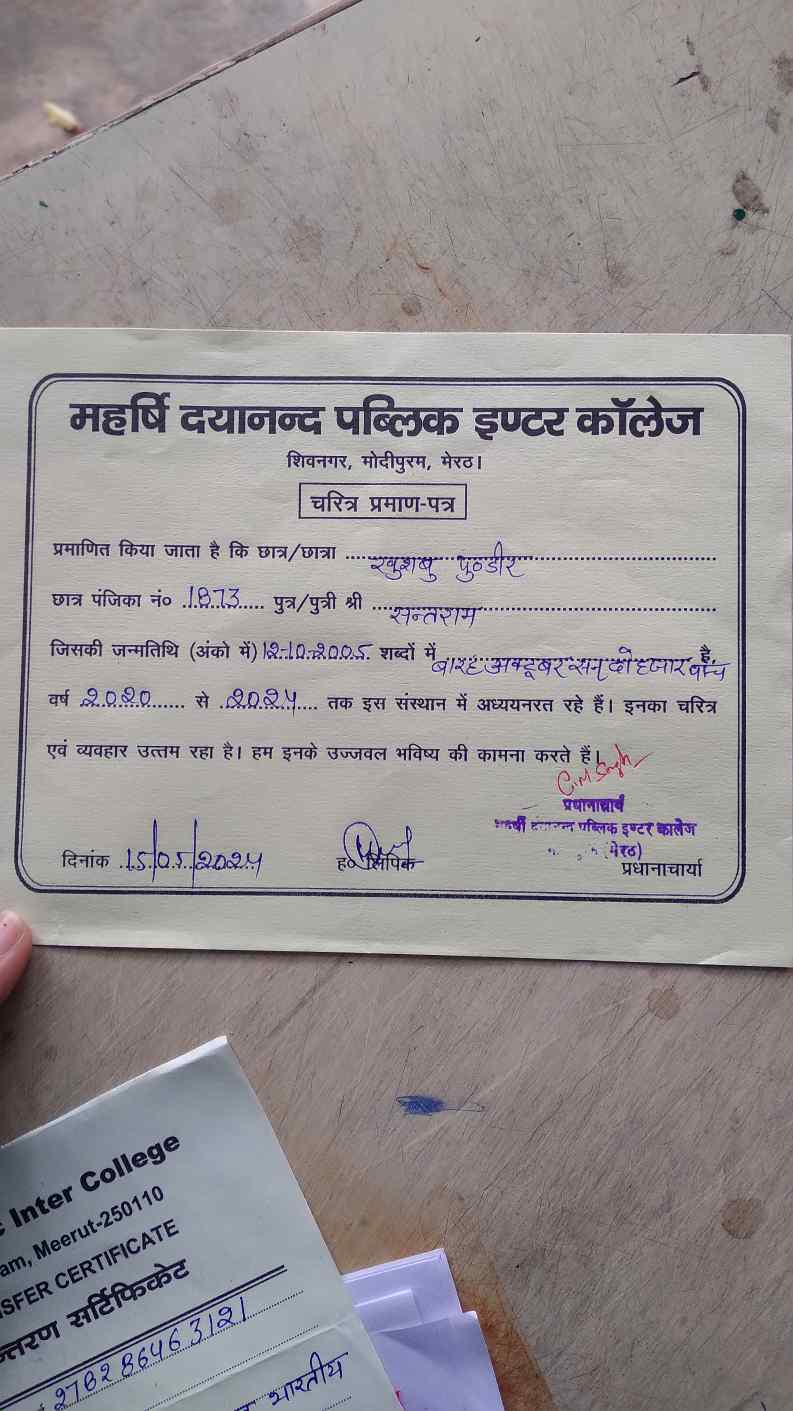 महर्षि दयानन्द पब्लिक इण्टर कॉलेज
शिवनगर, मोदीपुरम, मेरठ।
चरित्र प्रमाण-पत्र
प्रमाणित किया जाता है कि छात्र/छात्रा खुशबु पुण्डीर
छात्र पंजिका नं० 1873 पुत्र/पुत्री श्री सन्तराम
जिसकी जन्मतिथि (अंको में) 12-10-2005 शब्दों में बारह अक्टूबर सन् दो हजार पाँच है,
वर्ष 2020 से 2024 तक इस संस्थान में अध्ययनरत रहे हैं। इनका चरित्र
एवं व्यवहार उत्तम रहा है। हम इनके उज्जवल भविष्य की कामना करते हैं।
प्रधानाचार्य
महर्षी दयानन्द पब्लिक इण्टर कालेज
(मेरठ)
दिनांक 15/05/2024 ह० लिपिक प्रधानाचार्या
Inter College
am, Meerut-250110
SFER CERTIFICATE
न्तरण सर्टिफिकेट
276286463121
भारतीय